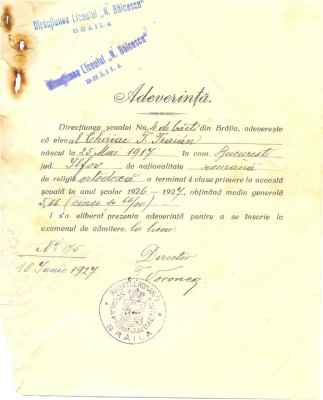 Direcțiunea Liceului „N. Bălcescu"
BRĂILA
Direcțiunea Liceului „N. Bălcescu"
BRĂILA
Adeverință.
Direcțiunea școalei No. 4 de băeți din Brăila, adeverește
că elevul Chiriac T. Traian
născut la 25 Mai 1917 în com București
jud. Ilfov de naționalitate română
de religie ortodoxă a terminat 4 clase primare la această
școală în anul școlar 1926 - 1927, obținând media generală
5,66 (cinci și 66/00)
I s'a eliberat prezenta adeverință pentru a se înscrie la
examenul de admitere, la liceu
No 175
18 Iunie 1927
Director
T. Voronca
REGATUL ROMÂNIEI
BRĂILA